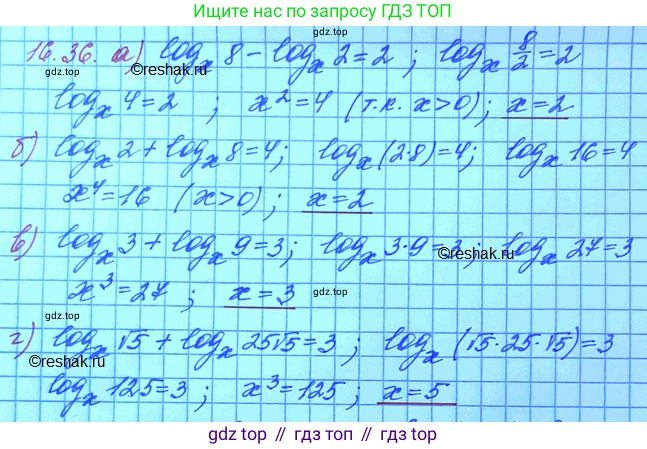 Ищите нас по запросу ГДЗ ТОП
16.36. а) log_x 8 - log_x 2 = 2 ; log_x 8/2 = 2
gdz top
©reshak.ru
gdz top
log_x 4 = 2 ; x² = 4 (т.к. x>0); x = 2
gdz top
б) log_x 2 + log_x 8 = 4; log_x (2·8) = 4; log_x 16 = 4
x⁴ = 16 (x>0) ; x = 2
gdz top
в) log_x 3 + log_x 9 = 3; log_x 3·9 = 3; log_x 27 = 3
©reshak.ru
x³ = 27 ; x = 3
gdz top
г) log_x √5 + log_x 25√5 = 3 ; log_x (√5·25·√5) = 3
©reshak.ru
gdz top
log_x 125 = 3 ; x³ = 125 ; x = 5
gdz top // гдз топ // gdz.top